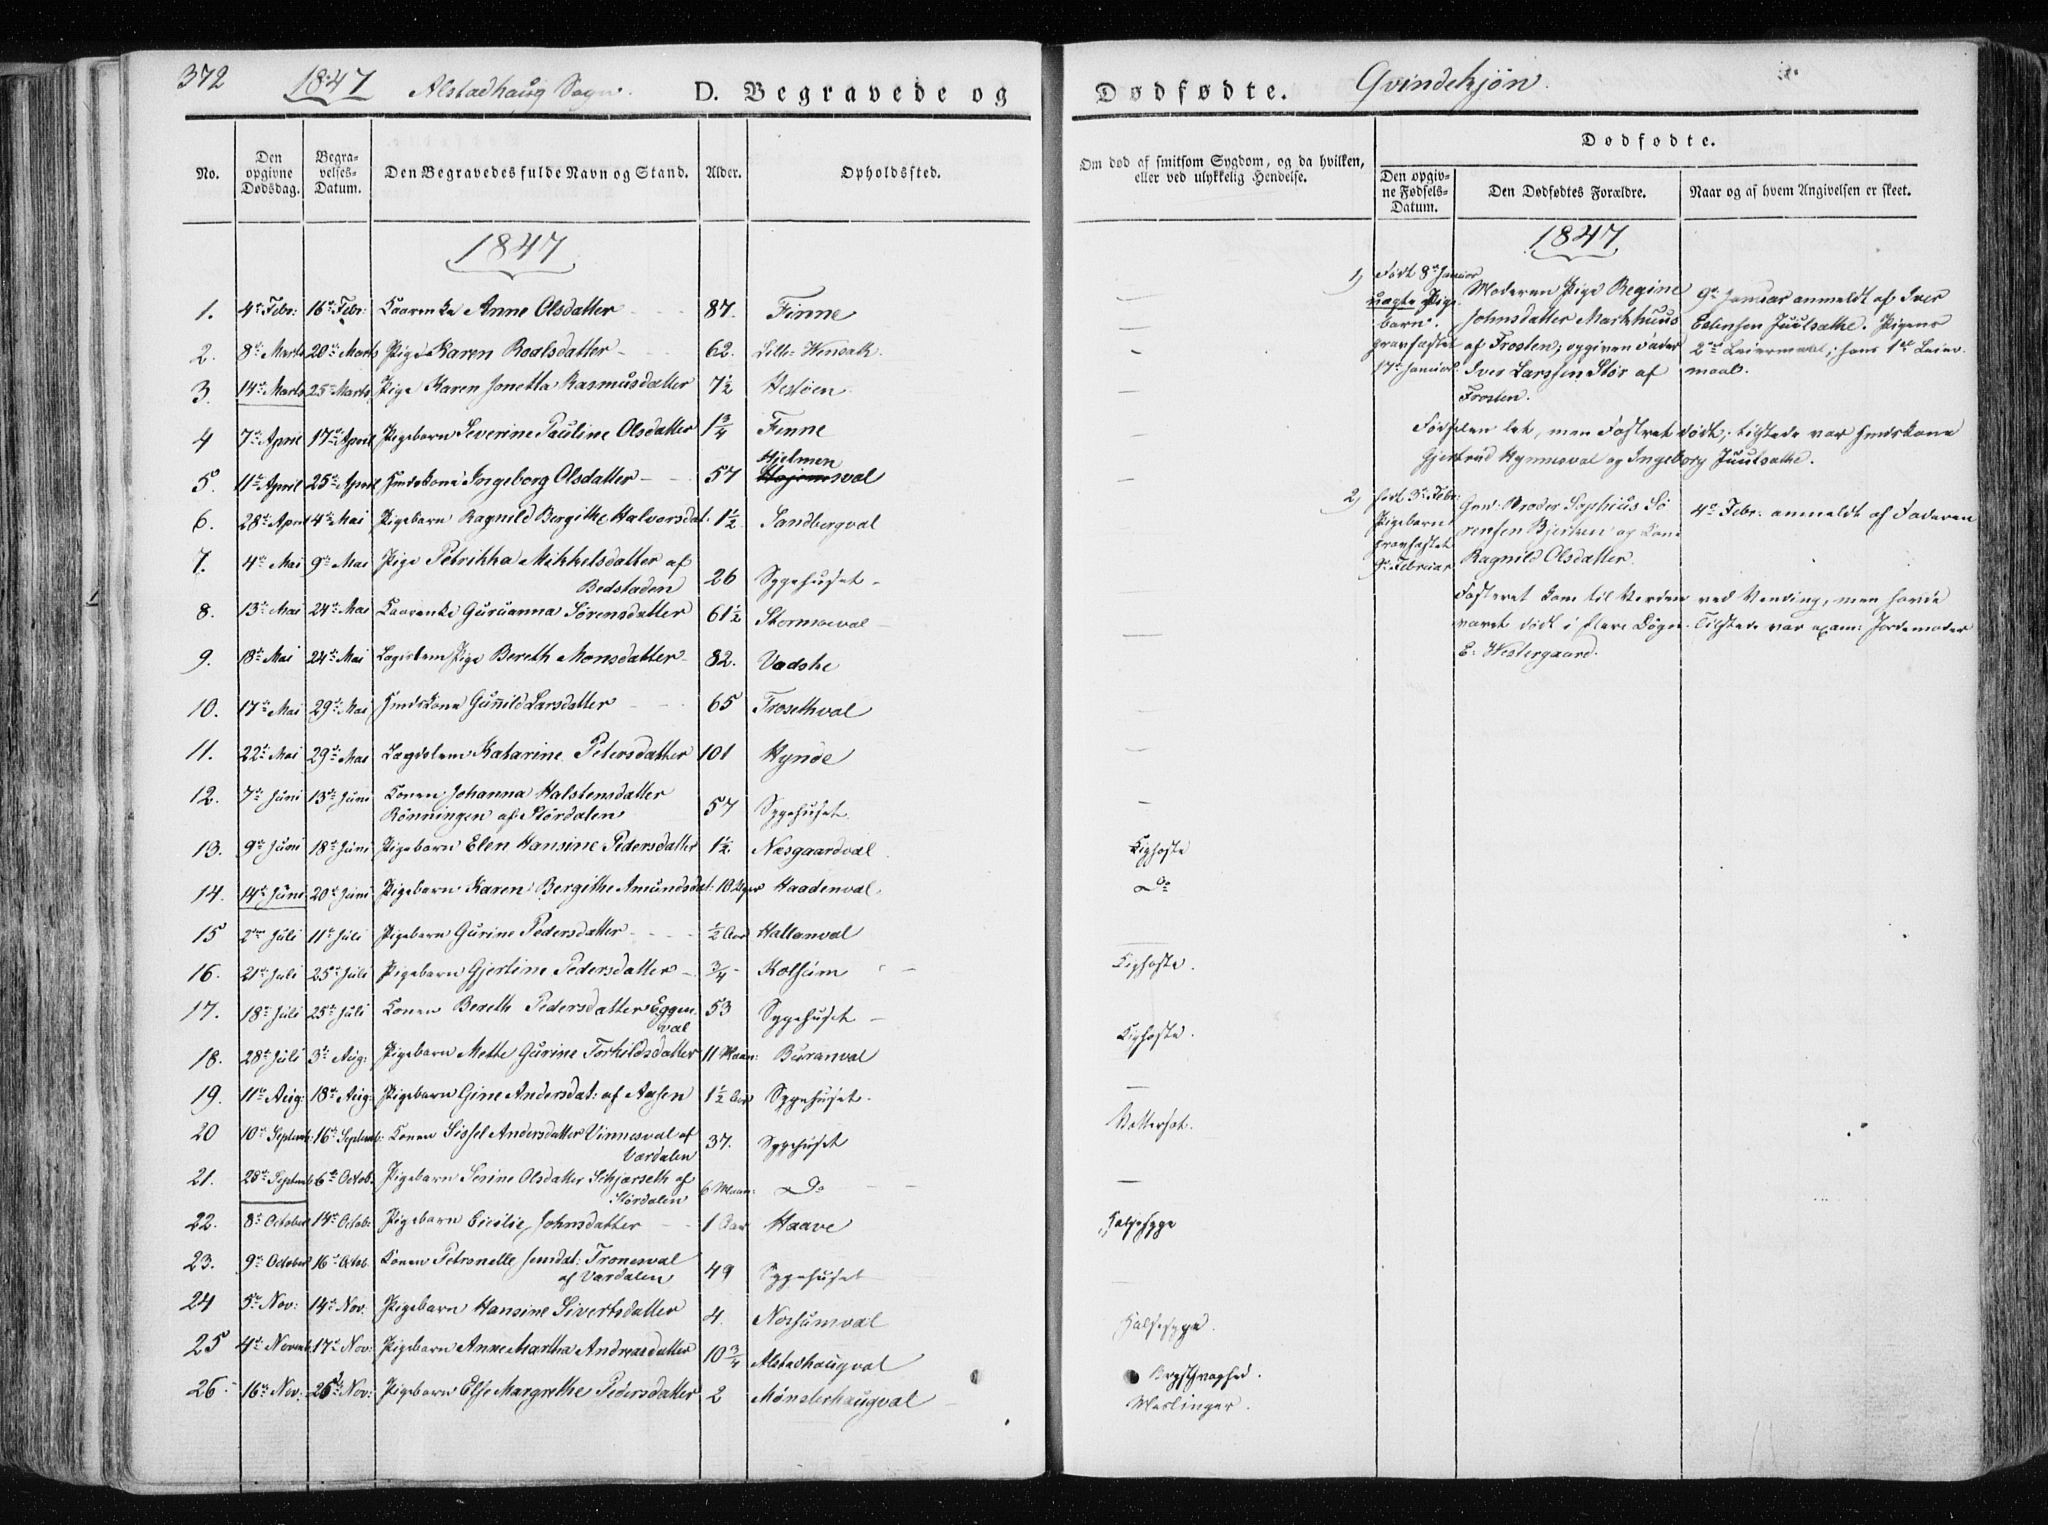 372 1847 Alstadhaug Sogn. D. Begravede og
No. Den opgivne Dødsdag. Begravelses-Datum. Den Begravedes fulde Navn og Stand. Alder. Opholdssted.
1847
1. 4de Febr: 16de Febr: Kaarenke Anne Olsdatter 87. Finne
2. 8de Marts 20de Marts Pige Karen Roalsdatter 62. Lille-Wensak
3. 14de Marts 25de Marts Pige Karen Jonetta Rasmusdatter 7½ Hestøen
4 7de April 17de April Pigebarn Severine Pauline Olsdatter 1¾ Finne
5. 11te April 25de April Huuskone Ingeborg Olsdatter 57 Hjelmensval
6. 28de April 4de Mai Pigebarn Ragnild Bergithe Halvorsdat: 1½ Sandbergval
7. 4de Mai 9de Mai Pige Petrikka Mikkelsdatter af
Bedstaden 26 Sygehuset
8. 13de Mai 24de Mai Kaarenke Guruanna Sørensdatter 61½ Stormoeval
9. 18de Mai 24de Mai Lægdslem Pige Bereth Monsdatter 82. Vadshe
10. 17de Mai 29de Mai Huuskone Gunnild Larsdatter 65 Trosethval
11. 22de Mai 29de Mai Lægdslem Katarine Petersdatter 101 Hynde
12. 7de Juni 13de Juni Konen Johanna Halstensdatter
Rönningen af Størdalen 57 Sygehuset
13. 9de Juni 18de Juni Pigebarn Elen Hansine Pedersdatter 1½ Næsgaardval
14. 14de Juni 20de Juni Pigebarn Karen Bergithe Amundsdat: 10 Uger Haadenval
15 2den Juli 11te Juli Pigebarn Gurine Pedersdatter ½ Aar Hallanval
16. 21de Juli 25de Juli Pigebarn Gjertine Pedersdatter ¾ Kolsum
17. 18de Juli 25de Juli Konen Bereth Pedersdatter Eggen
val 53 Sygehuset
18. 28de Juli 3de Aug: Pigebarn Mette Gurine Torkildsdatter 11 Maan: Buranval
19. 11te Aug: 18de Aug: Pigebarn Gine Andersdat: af Aasen 1½ Aar Sygehuset.
20 10de Septemb: 16de Septemb: Konen Sissel Andersdatter Vinnesval af
Værdalen 37. Sygehuset
21. 28de Septemb 6te Octob. Pigebarn Serine Olsdatter Skjerseth af
Størdalen 6 Maan: Do
22. 8de October 14de Octob: Pigebarn Cicilie Johnsdatter 1 Aar Haave
23. 9de October 16de Octob. Konen Petronelle Jensdat: Tronesval
af Værdalen 49 Sygehuset
24 5te Nov: 14de Nov. Pigebarn Hansine Sivertsdatter 4. Norsumval
25 4de Novemb: 17de Nov: Pigebarn Anne Martha Andreasdatter 10¾ Alstadhaugval
26. 16de Nov. 25de Nov: Pigebarn Else Margrethe Pedersdatter 2 Mønsterhaugval
Dødfødte. Qvindekjøn.
Om død af smitsom Sygdom, og da hvilken,
eller ved ulykkelig Hendelse.
Dødfødte.
Den opgivne Fødsels-Datum. Den Dødfødtes Forældre. Naar og af hvem Angivelsen er skeet.
1847
1) Født 8de Januar
uægte Pige-
barn.
gravfæstet
17de Januar.
Moderen Pige Regine
Johnsdatter Markhuus
af Frosten; opgiven Fader
Iver Larssen Stör af
Frosten.
9de Januar anmeldt af Iver
Estensen Juulsathe. Pigens
2det Leiermaal; hans 1ste Leier-
maal.
Fødselen let, men Fostret dødt; tilstede var Huuskone
Gjertrud Hynnesval og Ingeborg Juulsathe.
2) født 3de Febr:
Pigebarn
gravfæstet
Februar
Grd: Broder Sophius Sö
rensen Bjerken og Kone
Ragnild Olsdatter.
4de Febr: anmeldt af Faderen
Fosteret kom til Verden ved Vending, men havde
været dødt i flere Døgn. Tilstede var exam: Jordemoder
E. Westergaard.
Kighoste
Do
Kighoste.
Kighoste.
Halssyge
Halssyge.
Meslinger.